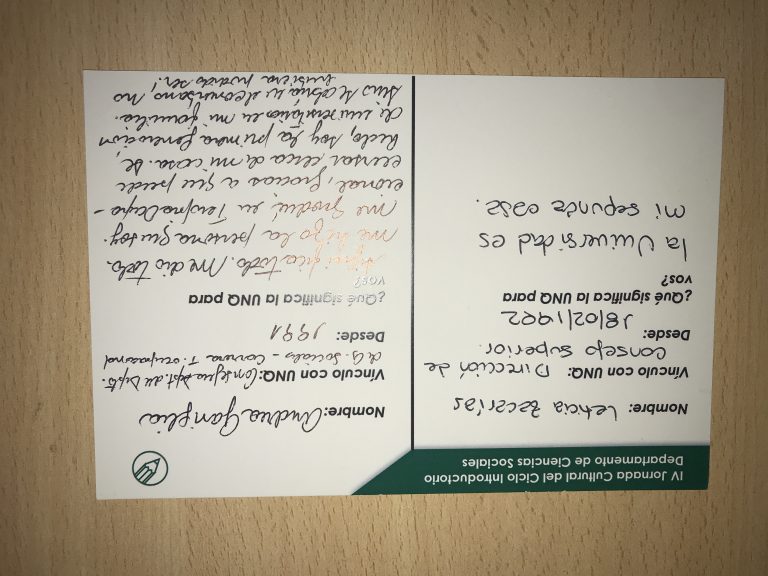 IV Jornada Cultural del Ciclo Introductorio
Departamento de Ciencias Sociales
Nombre: Leticia Zacarías
Vínculo con UNQ: Dirección de
Consejo Superior.
Desde:
18/02/1992
¿Qué significa la UNQ para
vos?
la Universidad es
mi segunda casa.
Nombre: Andrea Gariglia
Vínculo con UNQ: Consejera Dept. del Depto.
de Cs. Sociales - Carrera T. Ocupacional
Desde: 1991
¿Qué significa la UNQ para
vos?
Significa todo. Me dio todo.
me hizo la persona que soy.
me gradué en Terapia Ocupa-
cional, gracias a que pude
cursar cerca de mi casa. De
hecho, soy la primera generación
de universitarios en mi familia.
Sino hubiera
hubiera podido ser!